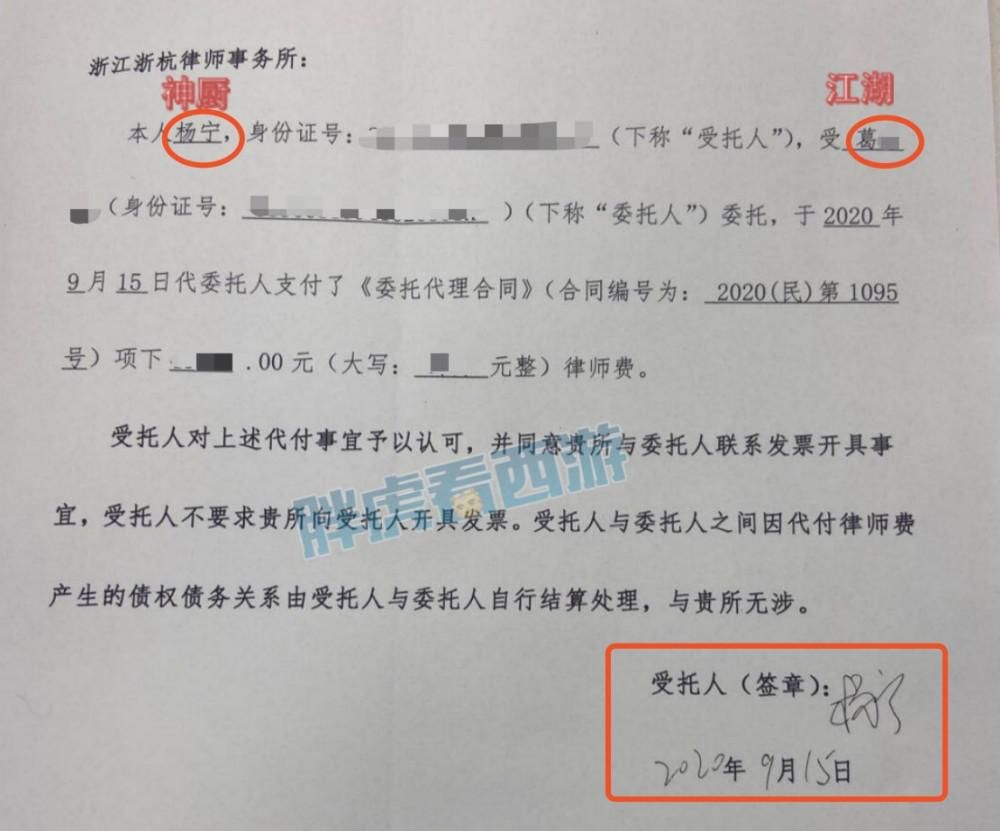 浙江浙杭律师事务所：
神厨
江湖
本人杨宁，身份证号：（下称“受托人”），受葛
（身份证号：）（下称“委托人”）委托，于2020年
9月15日代委托人支付了《委托代理合同》（合同编号为：2020(民)第1095
号）项下.00元（大写：元整）律师费。
受托人对上述代付事宜予以认可，并同意贵所与委托人联系发票开具事
胖虎看西游
宜，受托人不要求贵所向受托人开具发票。受托人与委托人之间因代付律师费
产生的债权债务关系由受托人与委托人自行结算处理，与贵所无涉。
受托人（签章）：杨宁
2020年9月15日